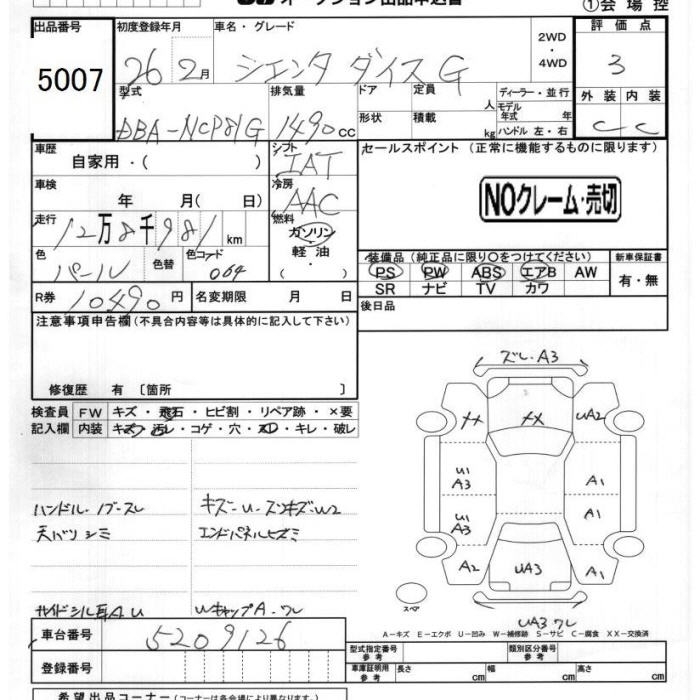 オークション出品申込書
①会場控
出品番号 初度登録年月 車名・グレード 評価点
5007 26 2月 シエンタ ダイス G 2WD・4WD 3
型式 排気量 ドア 定員 人 ディーラー・並行 外装 内装
DBA-NCP81G 1490cc 形状 積載 kg モデル年式 年 ハンドル 左・右 C C
車歴 自家用・( ) シフト IAT セールスポイント (正常に機能するものに限ります)
車検 年 月( 日) 冷房 AAC NOクレーム・売切
走行 12万8千981km 燃料 ガソリン・軽油・( )
色 パール 色替 色コード 064 装備品(純正品に限り○をつけてください) 新車保証書
PS PW ABS エアB AW 有・無
SR ナビ TV カワ
R券 10490円 名変期限 月 日 後日品
注意事項申告欄(不具合内容等は具体的に記入して下さい)
修復歴 有 [箇所 ]
検査員 FW キズ・飛石・ヒビ割・リペア跡・×要
記入欄 内装 キズ・汚レ・コゲ・穴・スレ・キレ・破レ
ハンドル・ノブスレ キズ-U-スリキズ-W2
天バリシミ エンドパネルヒズミ
サイドシル耳A.U Wキャップ A.ワレ
ズレ.A3
XX XX UA2
U1 A3 A1
U1 A3 A1
A2 UA3 A1
スペア
UA3 ワレ
A－キズ E－エクボ U－凹み W－補修跡 S－サビ C－腐食 XX－交換済
車台番号 5209126
登録番号
型式指定番号 参考 類別区分番号 参考
車庫証明用 参考 長さ cm 幅 cm 高さ cm
希望出品コーナー(コーナーは各会場により異なります。)